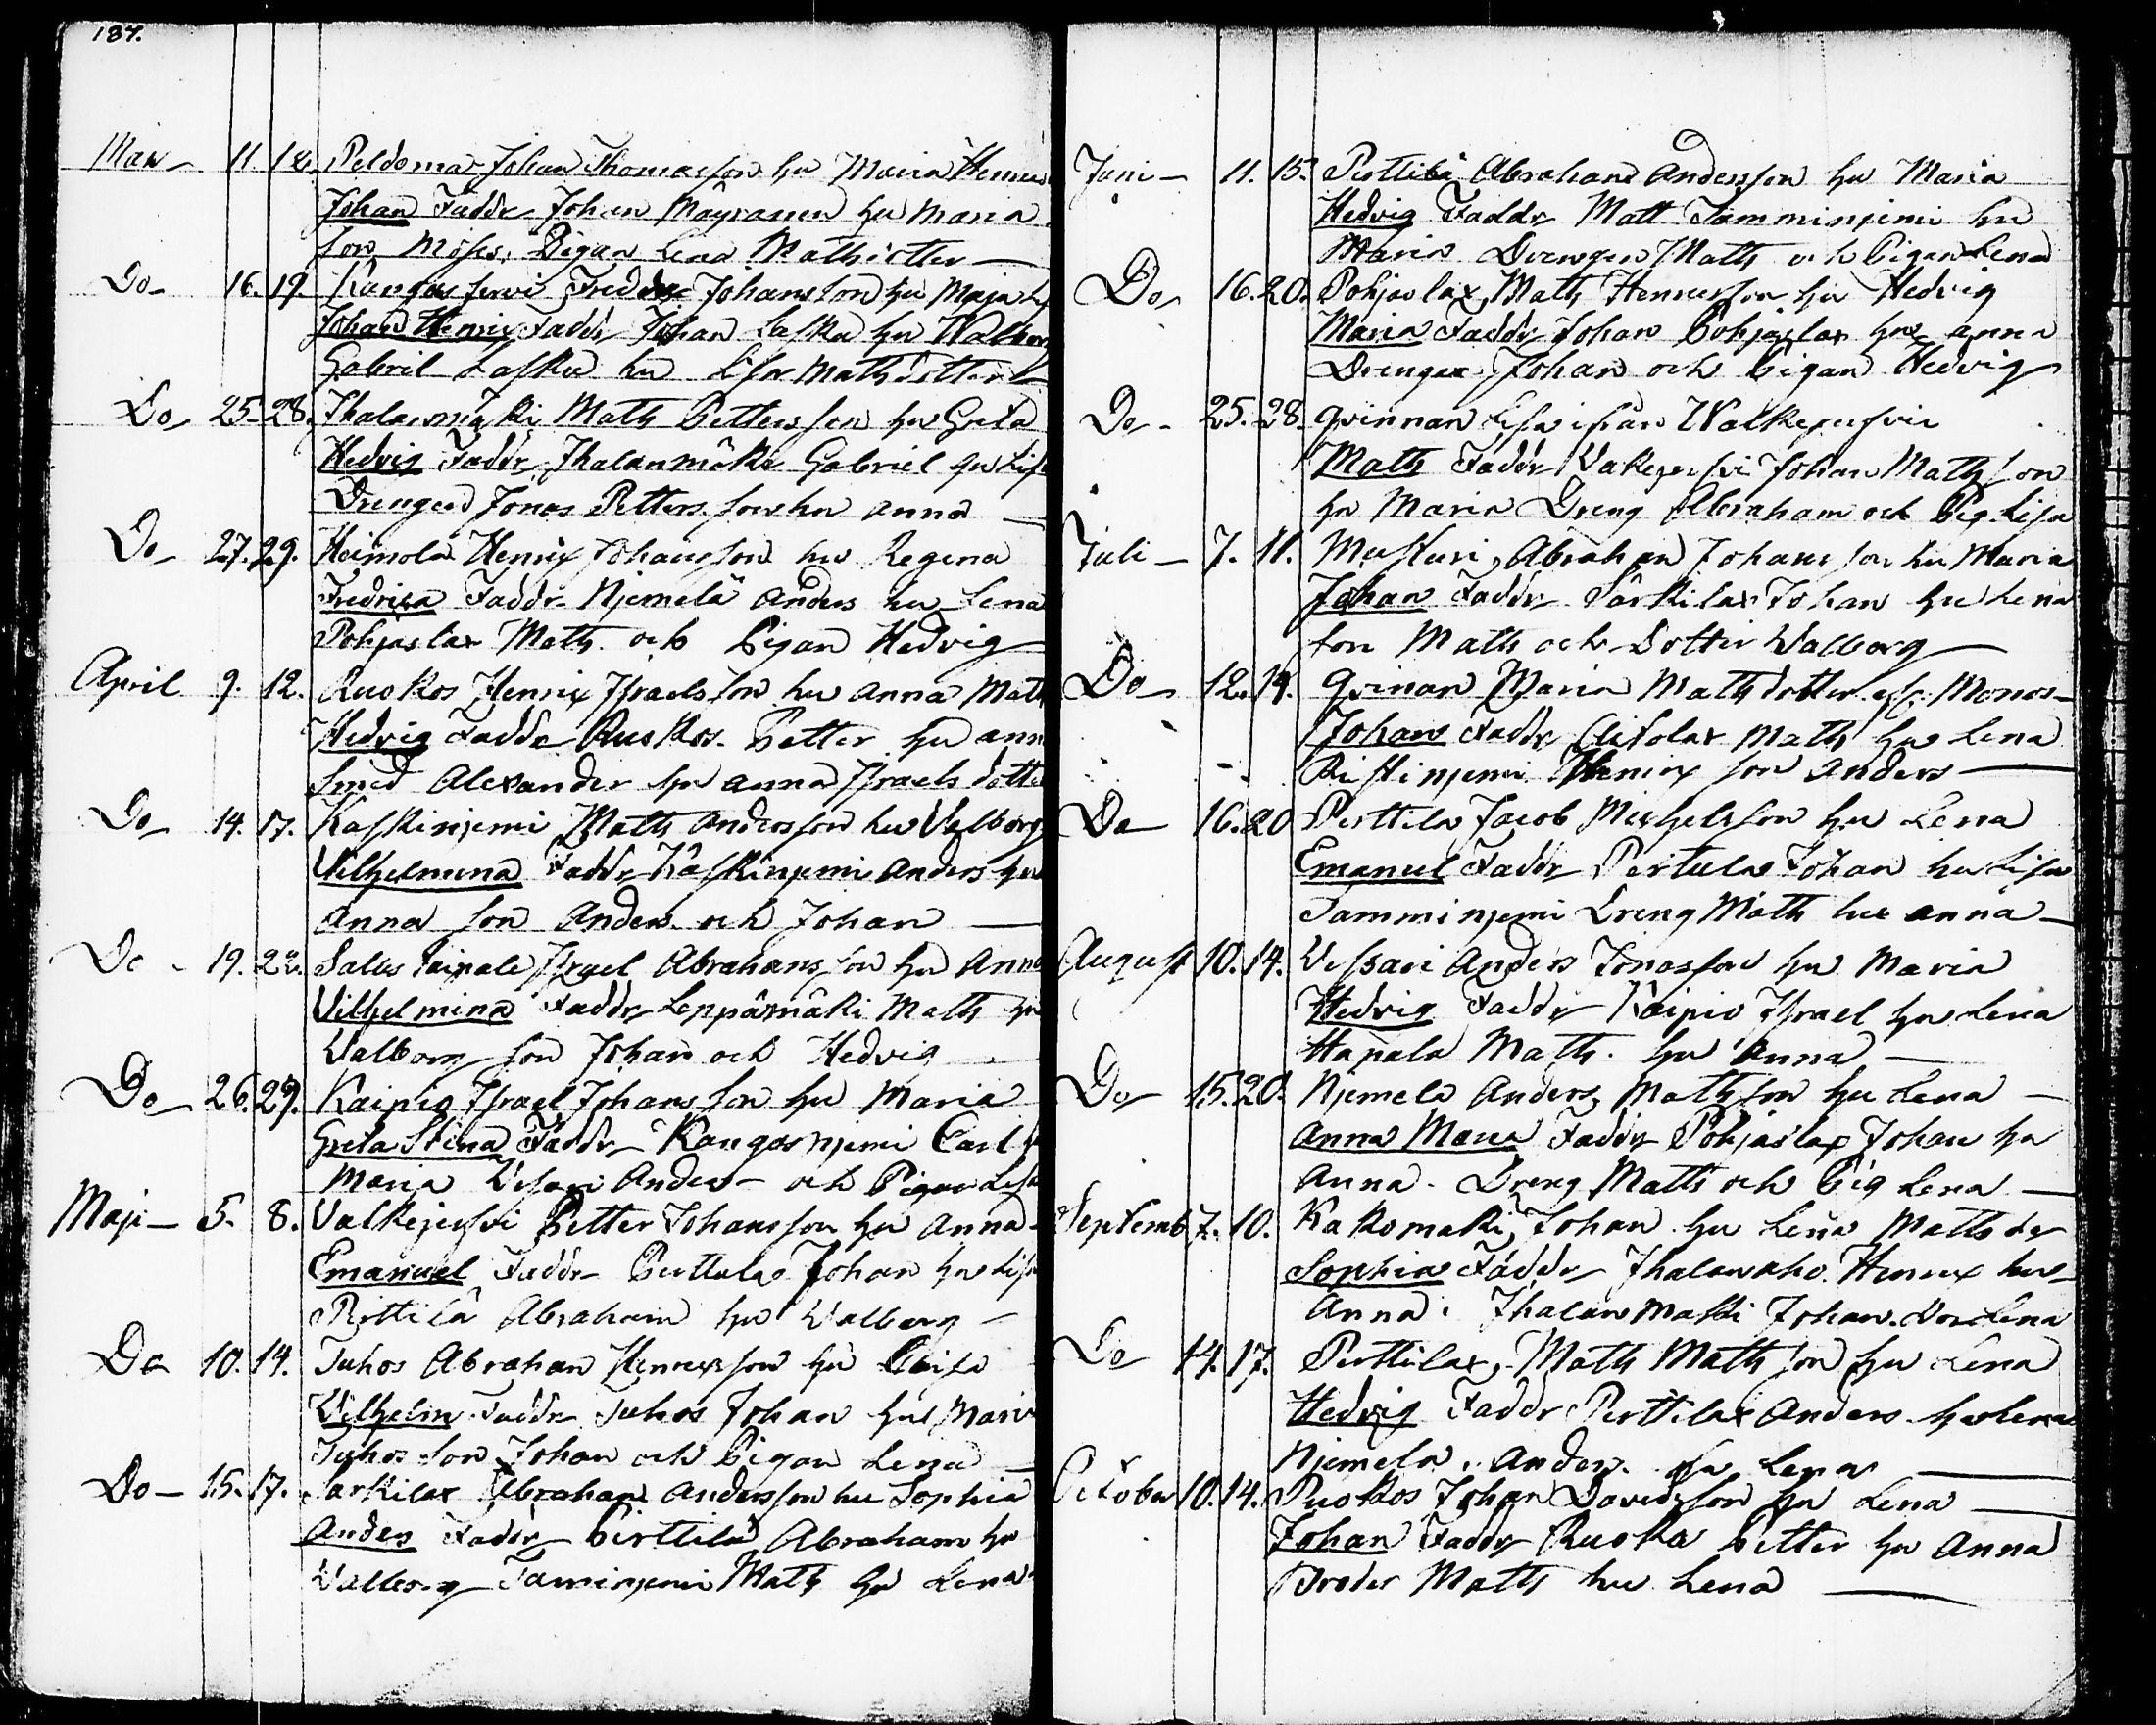 187.
Mars 11. 18. Peldoma Johan Thomasson hu Maria Henrics
Johan Faddr Johan Mäyränen hu Maria
son Moses, Pigan Lena Mathsdotter
Do 16. 19. Kangasjervi Johansson hu Maja
Johan Henrix Faddr Johan Laska hu Walborg
Gabril Laska hu Lisa Mathsdotter
Do 25. 28. Maths Pettersson hu Greta
Hedvig Faddr Jhalanmäki Gabriel hu Lisa
Drengen Jonas Pettersson hu Anna
Do 27. 29. Heimola Henrix Johansson hu Regena
Fredrica Faddr Njemelä Anders hu Lena
Pohjaslax Maths och Pigan Hedvig
April 9. 12. Ruokos Henrix Israelsson hu Anna Maths
Hedvig Faddr Ruokos Petter hu Anna
Smed Alexander hu Anna Israelsdotter
Do 14. 17. Kaskinjemi Maths Andersson hu Valborg
Vilhelmina Faddr Kaskinjemi Anders hu
Anna son Anders och Johan
Do 19. 22. Salus Taipale Israel Abrahamsson hu Anna
Vilhelmina Faddr Leppämäki Maths hu
Walborg son Johan och Hedvig
Do 26. 29. Kaipio Israel Johansson hu Maria
Greta Stina Faddr Kangasnjemi Carl hu
Maria Vesari Anders och Pigan Lisa
Maji 5. 8. Valkejerfvi Petter Johansson hu Anna
Emanuel Faddr Perttula Johan hu Lisa
Pirttilä Abraham hu Walborg
Do 10. 14. Juhos Abraham Henrixson hu
Vilhelm Faddr Juhos Johan hu Maria
Juhos son Johan och Pigan Lena
Do 15. 17. Särkilax Abraham Andersson hu Sophia
Anders Faddr Pirttilä Abraham hu
Walborg Taminjemi Maths hu Lena
Juni 11. 15. Perttilä Abraham Andersson hu Maria
Hedvig Faddr Matt Tamminjemi hu
Maria Drengen Maths och Pigan Lena
Do 16. 20. Pohjaslax Maths Henrixson hu Hedvig
Maria Faddr Johan Pohjaslax hu Anna
Drengen Johan och Pigan Hedvig
Do 25. 28. Qvinnan Lisa ifrån Walkejerfvi
Maths Faddr Valkejerfvi Johan Mathsson
hu Maria Dreng Abraham och Pig. Lisa
Juli 7. 11. Musturi Abraham Johansson hu Maria
Johan Faddr Särkilax Johan hu Lena
son Maths och Dotter Walborg
Do 12. 14. Qvinan Maria Mathsdotter
Johan Faddr Maths hu Lena
Ristinjemi Henrix son Anders
Do 16. 20 Perttila Jacob Michelsson hu Lena
Emanuel Faddr Pertula Johan hu Lisa
Tamminjemi Dreng Maths hu Anna
August 10. 14. Vessari Anders Jonasson hu Maria
Hedvig Faddr Kaipio Israel hu Lena
Hapala Maths. hu Anna
Do 15. 20. Njemela Anders Mathsson hu Lena
Anna Maria Faddr Pohjaslax Johan hu
Anna. Dreng Matts och Pig Lena
Septemb 7. 10. Kakomäki Johan hu Lena Matts dr
Sophia Faddr Jhalanaho Henrix hu
Anna. Jhalanmäki Johan Lena
Do 14. 17. Perttilax Maths Mathsson hu Lena
Hedvig Faddr Perttilax Anders hu Lena
Njemela Anders hu Lena
October 10. 14. Ruokos Johan Davidsson hu Lena
Johan Faddr Ruoka Petter hu Anna
Broder Matts hu Lena